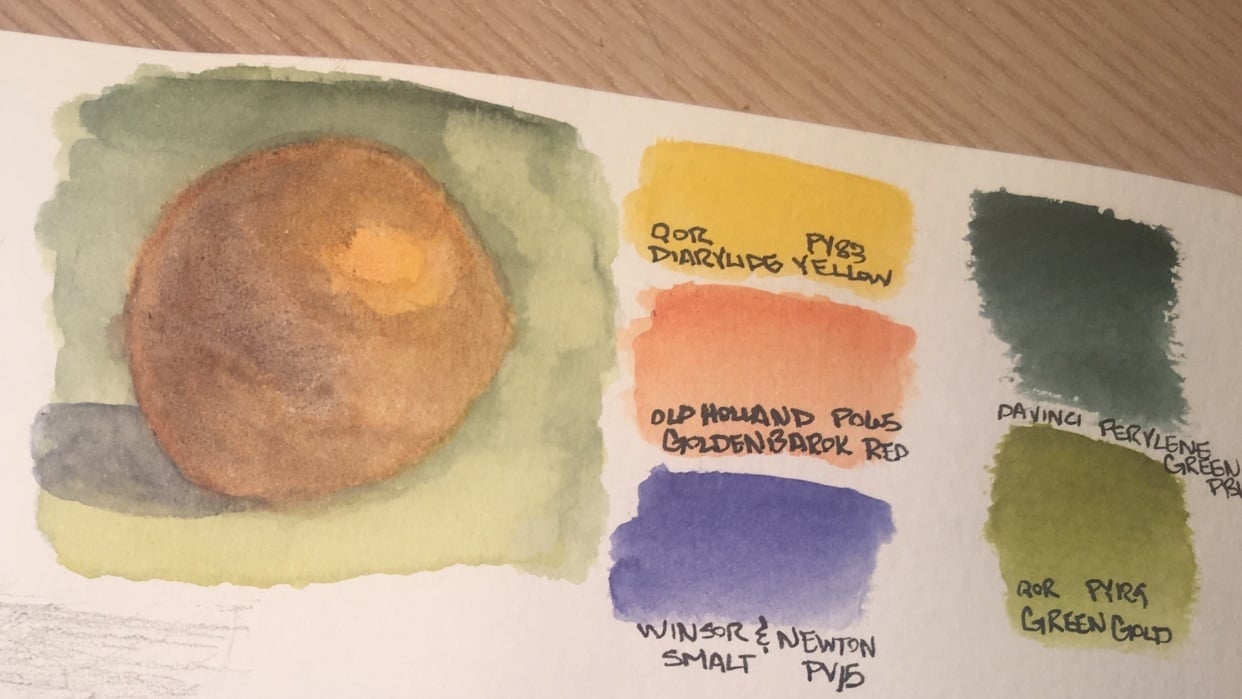 QOR PY83
DIARYLIDE YELLOW
OLD HOLLAND
GOLDEN BAROK RED
WINSOR & NEWTON
SMALT PV15
DAVINCI PERYLENE
GREEN
QOR PY129
GREEN GOLD